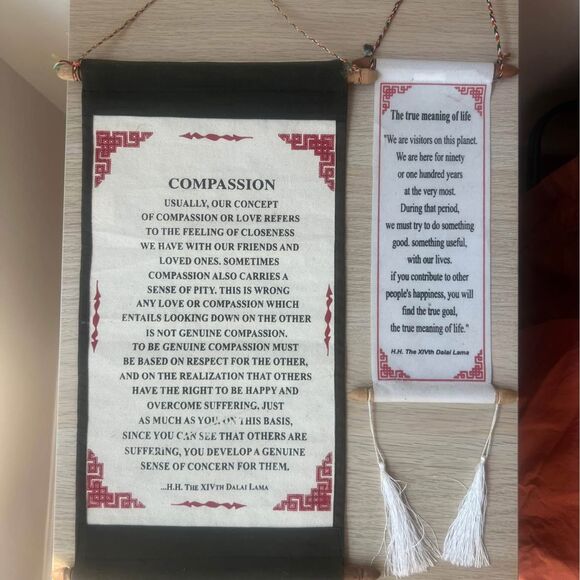 COMPASSION
USUALLY, OUR CONCEPT
OF COMPASSION OR LOVE REFERS
TO THE FEELING OF CLOSENESS
WE HAVE WITH OUR FRIENDS AND
LOVED ONES. SOMETIMES
COMPASSION ALSO CARRIES A
SENSE OF PITY. THIS IS WRONG
ANY LOVE OR COMPASSION WHICH
ENTAILS LOOKING DOWN ON THE OTHER
IS NOT GENUINE COMPASSION.
TO BE GENUINE COMPASSION MUST
BE BASED ON RESPECT FOR THE OTHER,
AND ON THE REALIZATION THAT OTHERS
HAVE THE RIGHT TO BE HAPPY AND
OVERCOME SUFFERING. JUST
AS MUCH AS YOU. ON THIS BASIS,
SINCE YOU CAN SEE THAT OTHERS ARE
SUFFERING, YOU DEVELOP A GENUINE
SENSE OF CONCERN FOR THEM.
...H.H. THE XIVTH DALAI LAMA
The true meaning of life
"We are visitors on this planet.
We are here for ninety
or one hundred years
at the very most.
During that period,
we must try to do something
good. something useful,
with our lives.
if you contribute to other
people's happiness, you will
find the true goal,
the true meaning of life."
H.H. The XIVth Dalai Lama